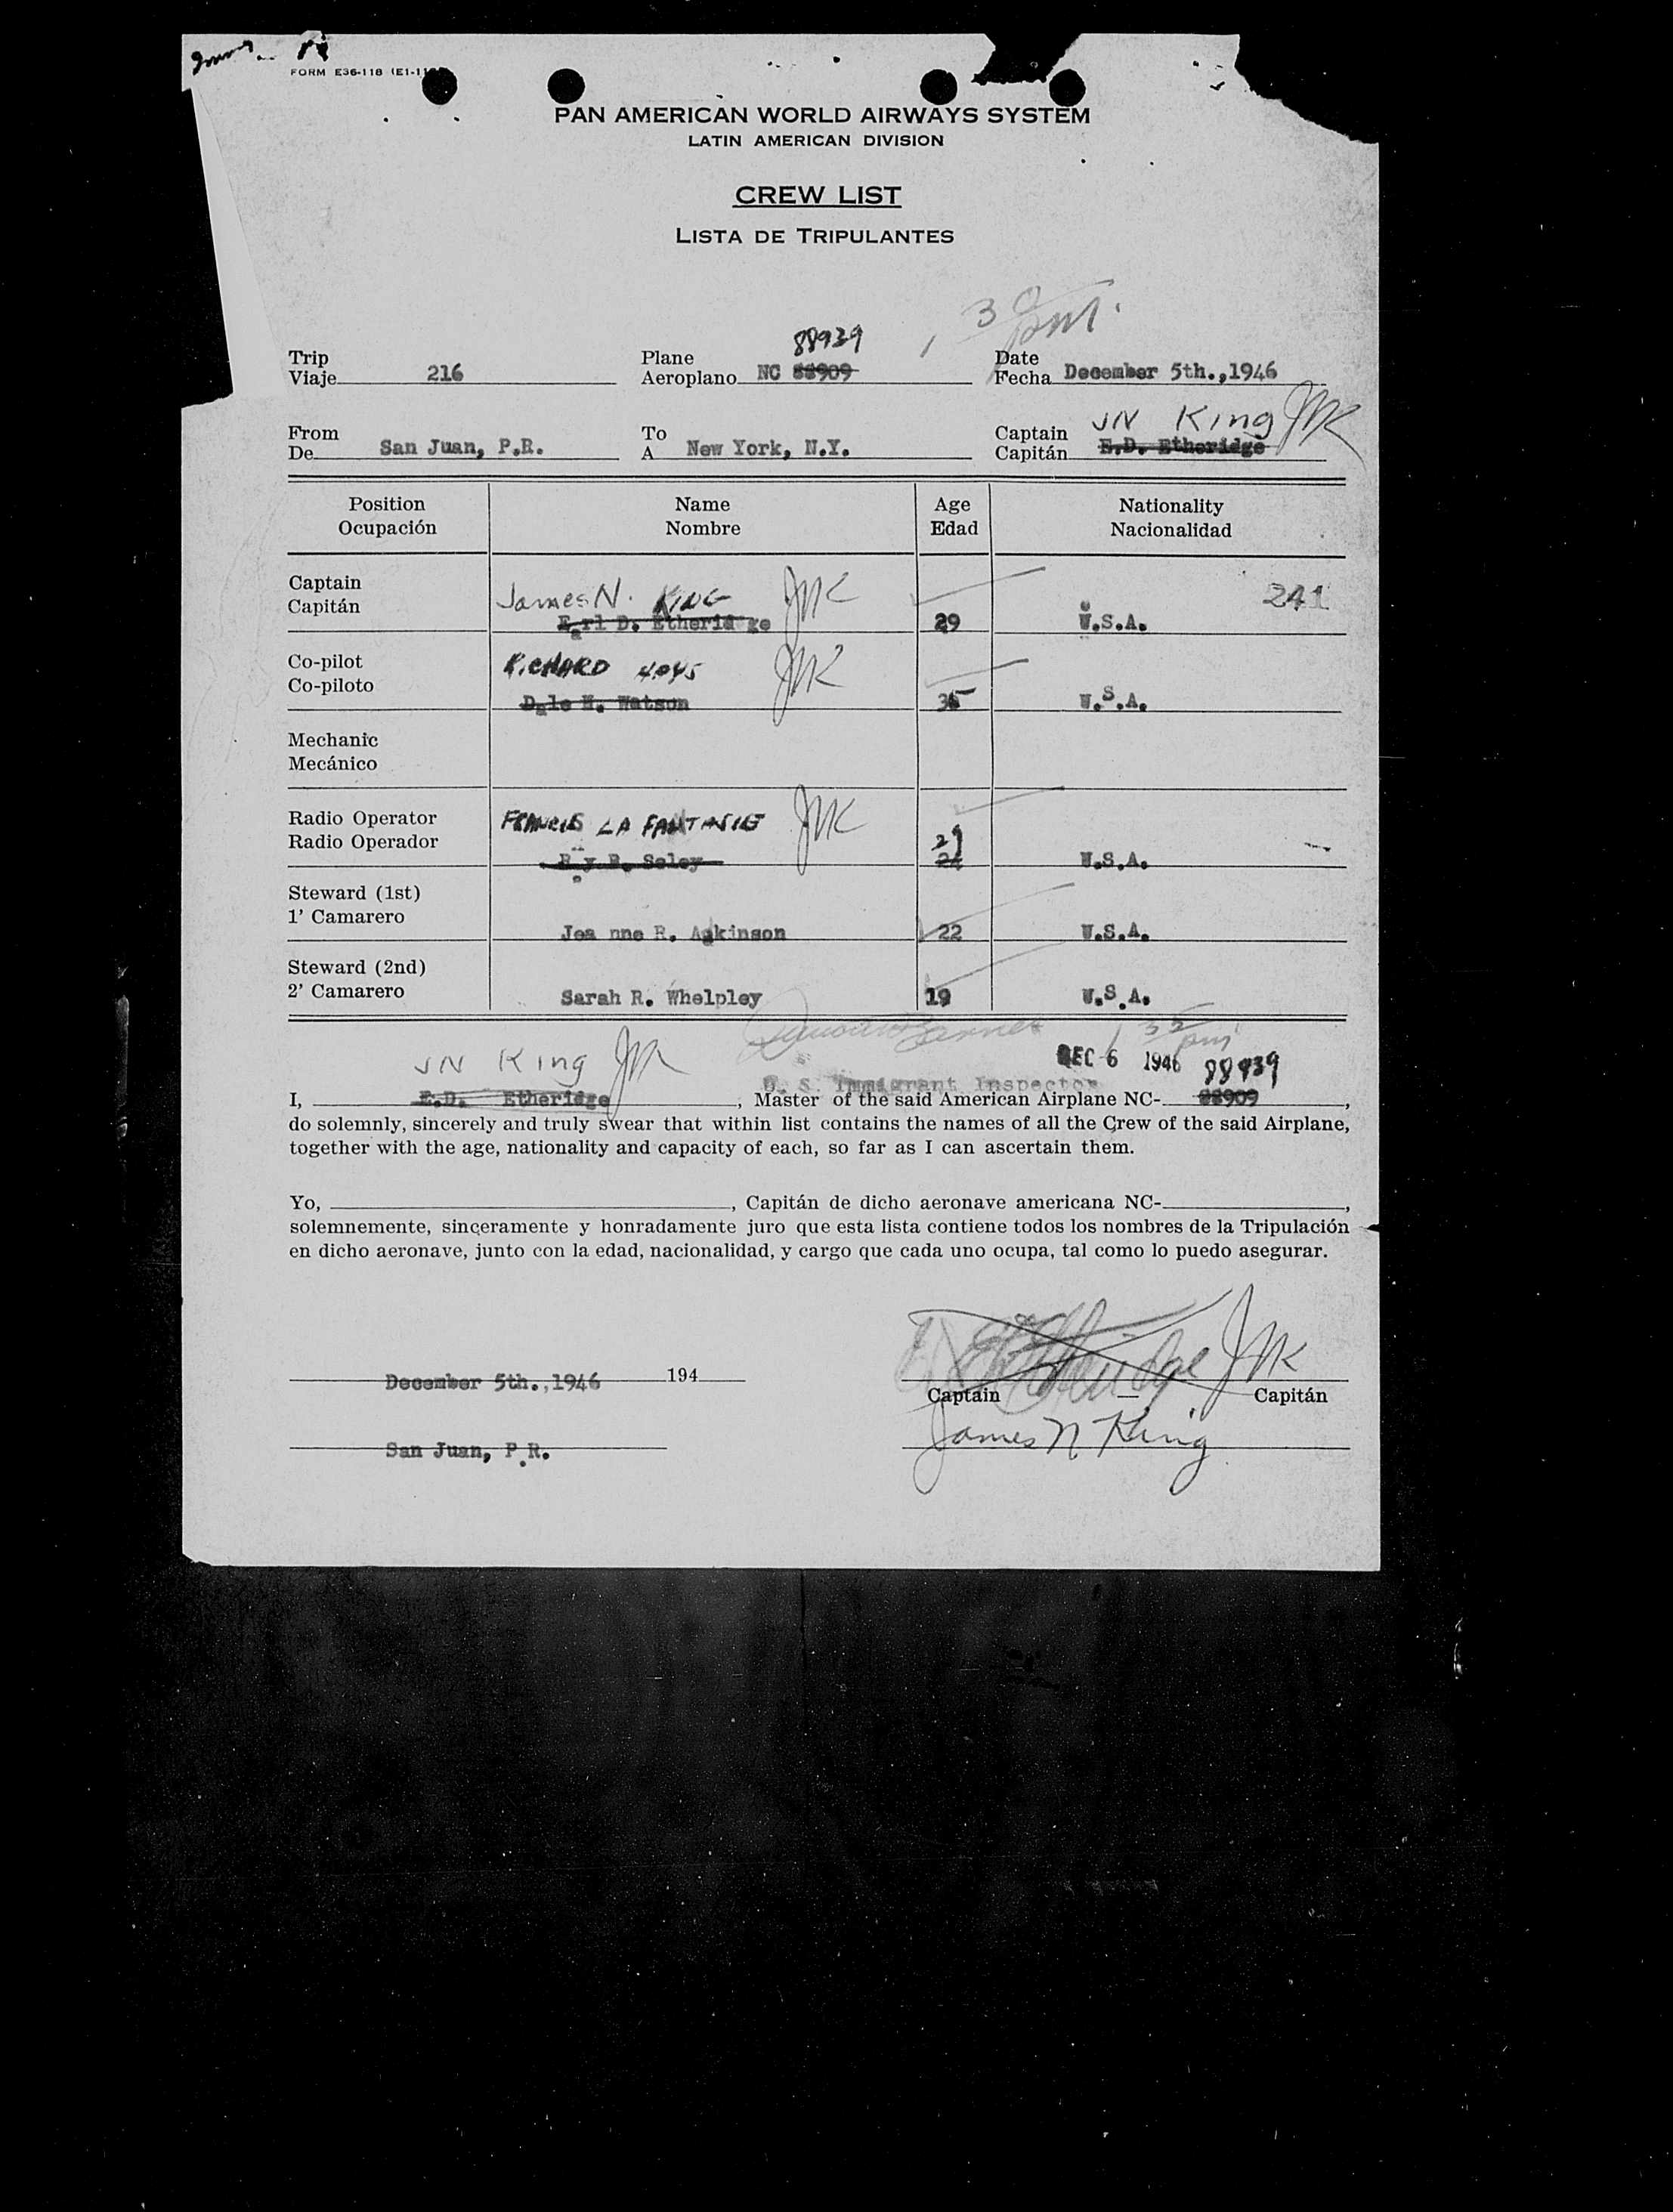 FORM E36-118 (E1-11
PAN AMERICAN WORLD AIRWAYS SYSTEM
LATIN AMERICAN DIVISION
CREW LIST
LISTA DE TRIPULANTES
1 30 pm.
88939
Trip Plane Date
Viaje 216 Aeroplano NC 88909 Fecha December 5th.,1946
JN King JNK
From To Captain
De San Juan, P.R. A New York, N.Y. Capitán E.D. Etheridge
Position Name Age Nationality
Ocupación Nombre Edad Nacionalidad
Captain James N. KING JNK 241
Capitán Earl D. Etheridge 29 U.S.A.
Co-pilot RICHARD JNK
Co-piloto Dale H. Watson 35 U.S.A.
Mechanic
Mecánico
Radio Operator FRANCIS LA FANTASIE JNK 29
Radio Operador U.S.A.
Steward (1st)
1' Camarero Jea nne R. Askinson 22 U.S.A.
Steward (2nd)
2' Camarero Sarah R. Whelpley 19 U.S.A.
1 35 pm
JN King JNK DEC 6 1946 88939
U. S. Immigrant Inspector
I, E.D. Etheridge, Master of the said American Airplane NC- 88909,
do solemnly, sincerely and truly swear that within list contains the names of all the Crew of the said Airplane,
together with the age, nationality and capacity of each, so far as I can ascertain them.
Yo, , Capitán de dicho aeronave americana NC- ,
solemnemente, sinceramente y honradamente juro que esta lista contiene todos los nombres de la Tripulación
en dicho aeronave, junto con la edad, nacionalidad, y cargo que cada uno ocupa, tal como lo puedo asegurar.
E D Etheridge JNK
December 5th.,1946 194
Captain — Capitán
James N King
San Juan, P.R.